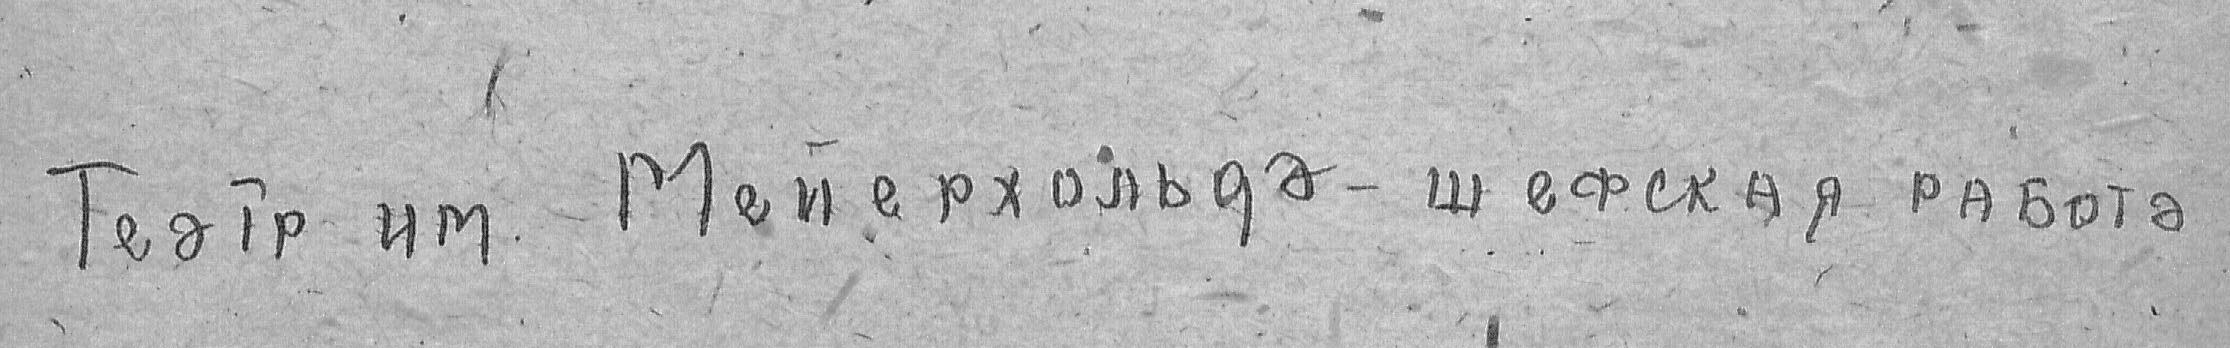 Театр им. Мейерхольда - шефская работа